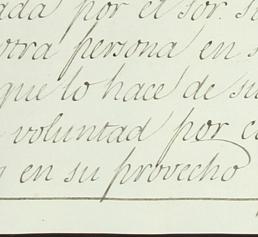 ada por el sor. s
otra persona en s
que lo hace de su
voluntad por e
en su provecho